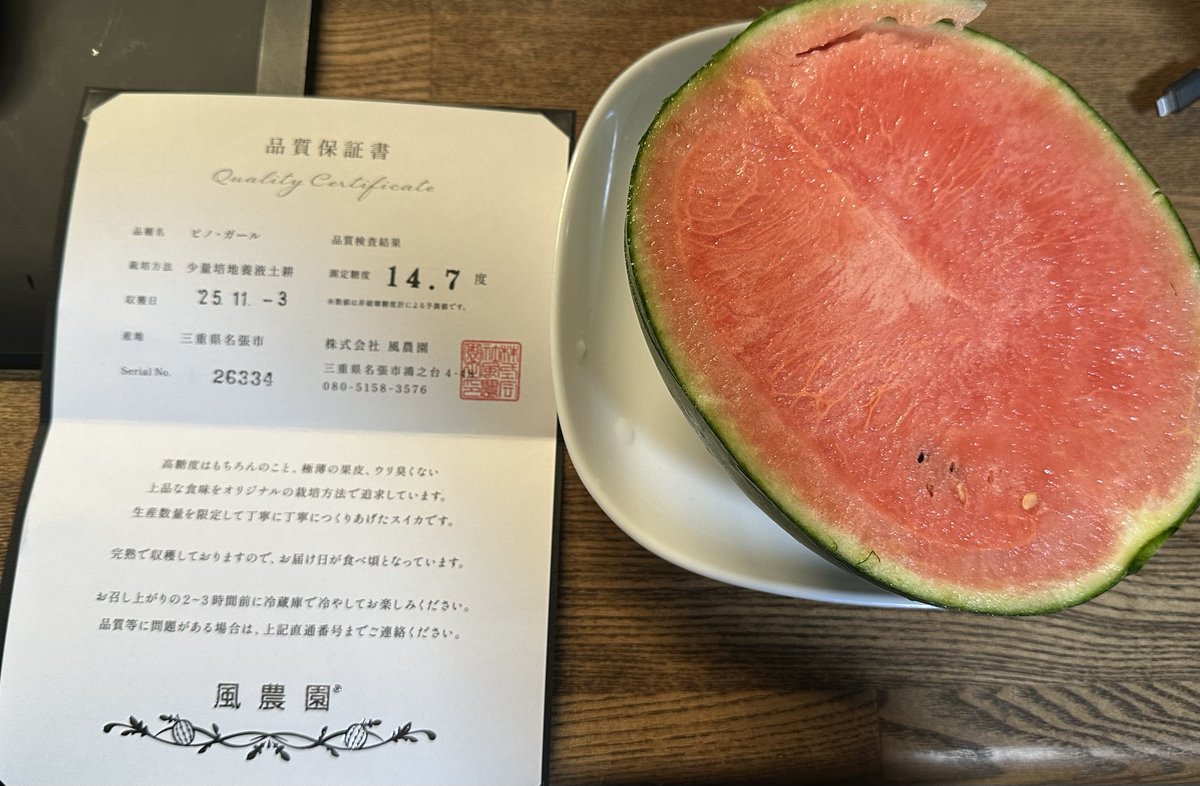 品質保証書
Quality Certificate
品種名 ピノ・ガール
栽培方法 少量培地養液土耕
収穫日 '25.11.-3
産地 三重県名張市
Serial No. 26334
品質検査結果
測定糖度 14.7 度
※数値は非破壊糖度計による予測値です。
株式会社 風農園
三重県名張市鴻之台4-
080-5158-3576
高糖度はもちろんのこと、極薄の果皮、ウリ臭くない
上品な食味をオリジナルの栽培方法で追求しています。
生産数量を限定して丁寧に丁寧につくりあげたスイカです。
完熟で収穫しておりますので、お届け日が食べ頃となっています。
お召し上がりの2~3時間前に冷蔵庫で冷やしてお楽しみください。
品質等に問題がある場合は、上記直通番号までご連絡ください。
風農園®